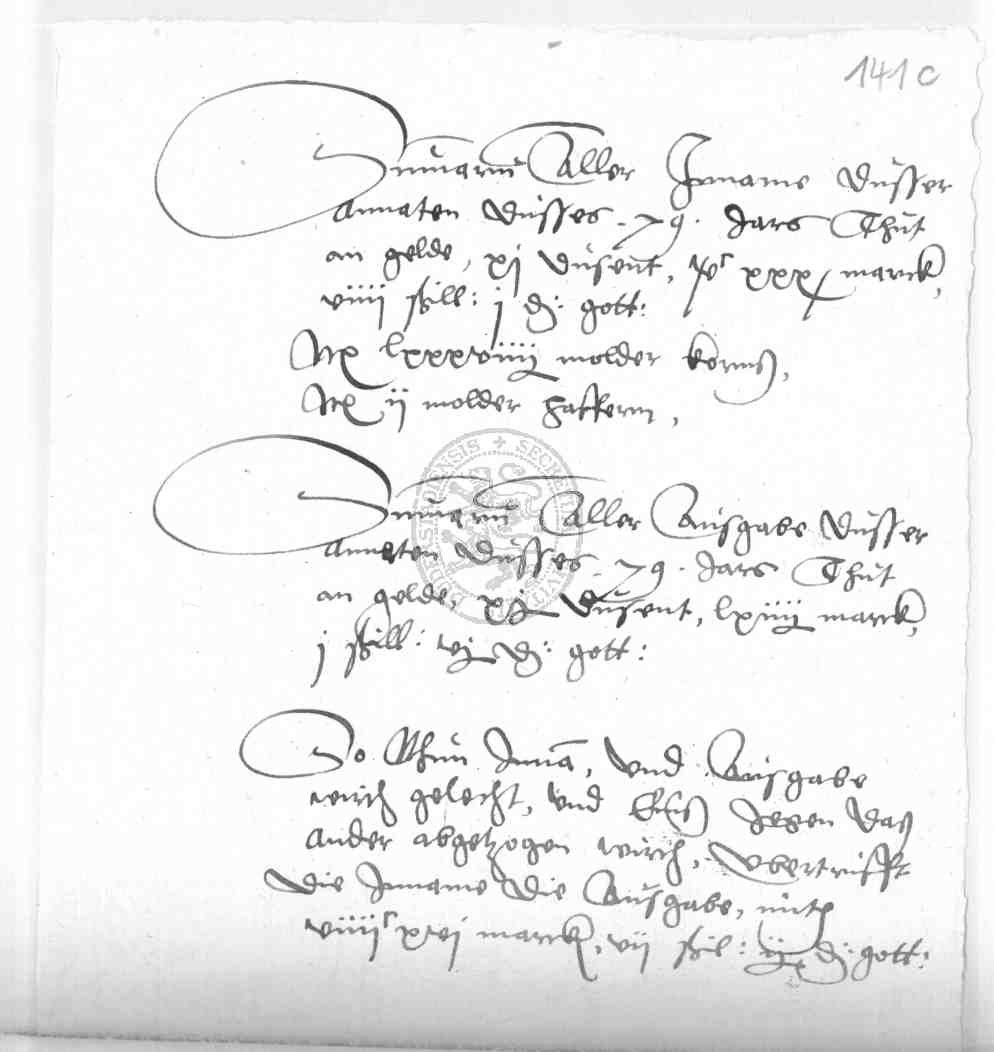 141 c
Summarum Aller Inname Dusser
Annaten Dusses 79. Jars Thut
an gelde, xj Dusent, xxx marck,
viiij ßill: j d: gott:
Noch lxxxviiij molder korns,
Noch ij molder haffern,
Summarum Aller Ausgabe Dusser
Annaten Dusses 79. Jars Thut
an gelde, Dusent, lxiiij marck,
j ßill: vj d: gott:
So Nhun Innam, und Ausgabe
wirth gelecht, und Eins gegen das
ander abgetzogen wirth, Ubertrifft
die Inname die Ausgabe, mith
viiij xvj marck, vij ßil: d: gott: